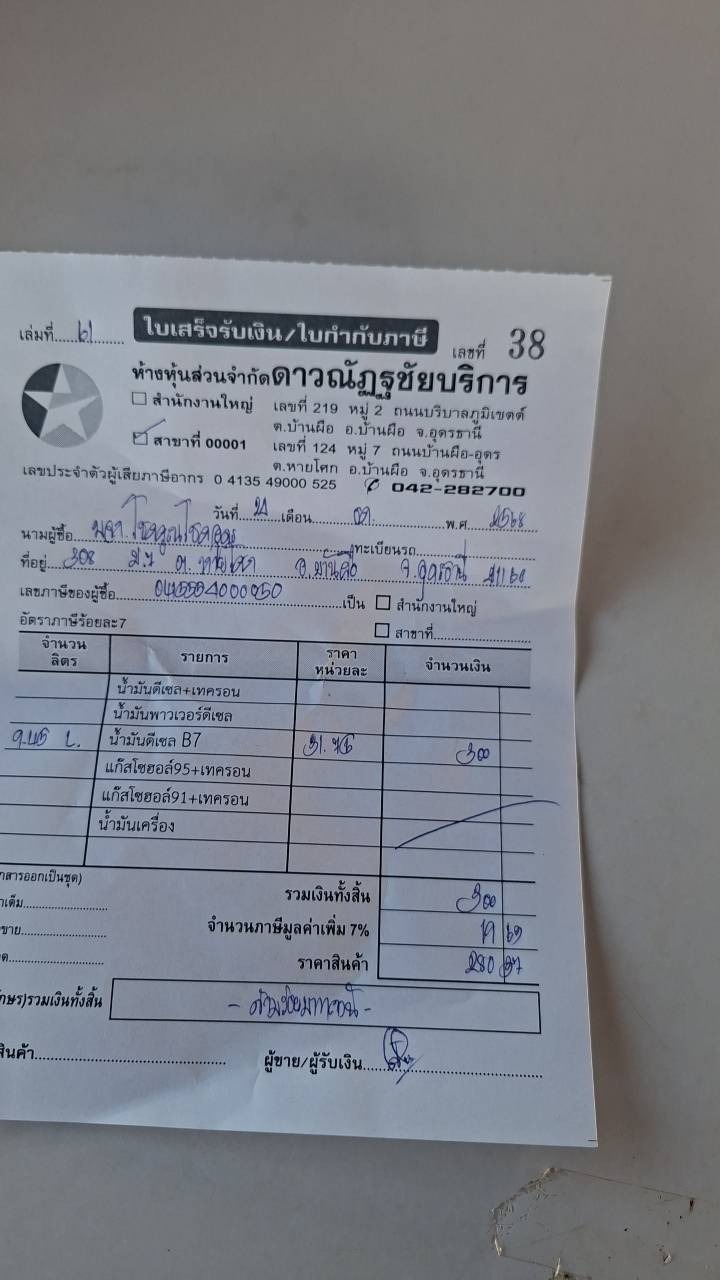 ใบเสร็จรับเงิน/ใบกำกับภาษี
เล่มที่ เลขที่ 38
ห้างหุ้นส่วนจำกัดดาวณัฏฐชัยบริการ
สำนักงานใหญ่ เลขที่ 219 หมู่ 2 ถนนบริบาลภูมิเขตต์
ต.บ้านผือ อ.บ้านผือ จ.อุดรธานี
สาขาที่ 00001 เลขที่ 124 หมู่ 7 ถนนบ้านผือ-อุดร
ต.หายโศก อ.บ้านผือ จ.อุดรธานี
เลขประจำตัวผู้เสียภาษีอากร 0 4135 49000 525 042-282700
วันที่ เดือน พ.ศ. 2568
นามผู้ซื้อ ทะเบียนรถ
ที่อยู่ 308 ม.7 จ.อุดรธานี 41160
เลขภาษีของผู้ซื้อ เป็น สำนักงานใหญ่
อัตราภาษีร้อยละ7 สาขาที่
จำนวนลิตร รายการ ราคาหน่วยละ จำนวนเงิน
น้ำมันดีเซล+เทครอน
น้ำมันพาวเวอร์ดีเซล
9.45 L. น้ำมันดีเซล B7 31.75 300
แก๊สโซฮอล์95+เทครอน
แก๊สโซฮอล์91+เทครอน
น้ำมันเครื่อง
กสารออกเป็นชุด)
รวมเงินทั้งสิ้น 300
จำนวนภาษีมูลค่าเพิ่ม 7% 19 63
ราคาสินค้า 280 37
รวมเงินทั้งสิ้น - สามร้อยบาทถ้วน -
สินค้า ผู้ขาย/ผู้รับเงิน